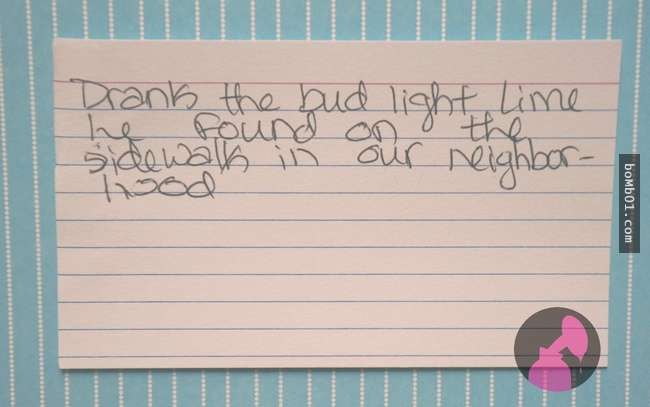 Drank the bud light Lime
he found on the
sidewalk in our neighbor-
hood
boMb01.com